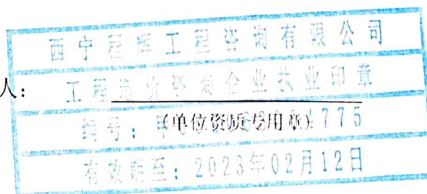 西宁程 工程咨询有限公司
人：
工程造价咨询企业执业印章
编号： 775
（单位资质专用章）
有效期至：2023年02月12日